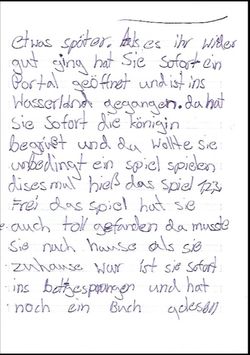 etwas später. Als es ihr wider
gut ging hat Sie sofort ein
Portal geöffnet und ist ins
Wasserland gegangen. da hat
sie sofort die königin
Begrüßt und da wollte sie
unbedingt ein spiel spielen
dises mal hieß das spiel 123
Frei das spiel hat sie
auch toll gefunden da musste
sie nach hause als sie
zuhause war ist sie sofort
ins bett gesprungen und hat
noch ein Buch gelesen